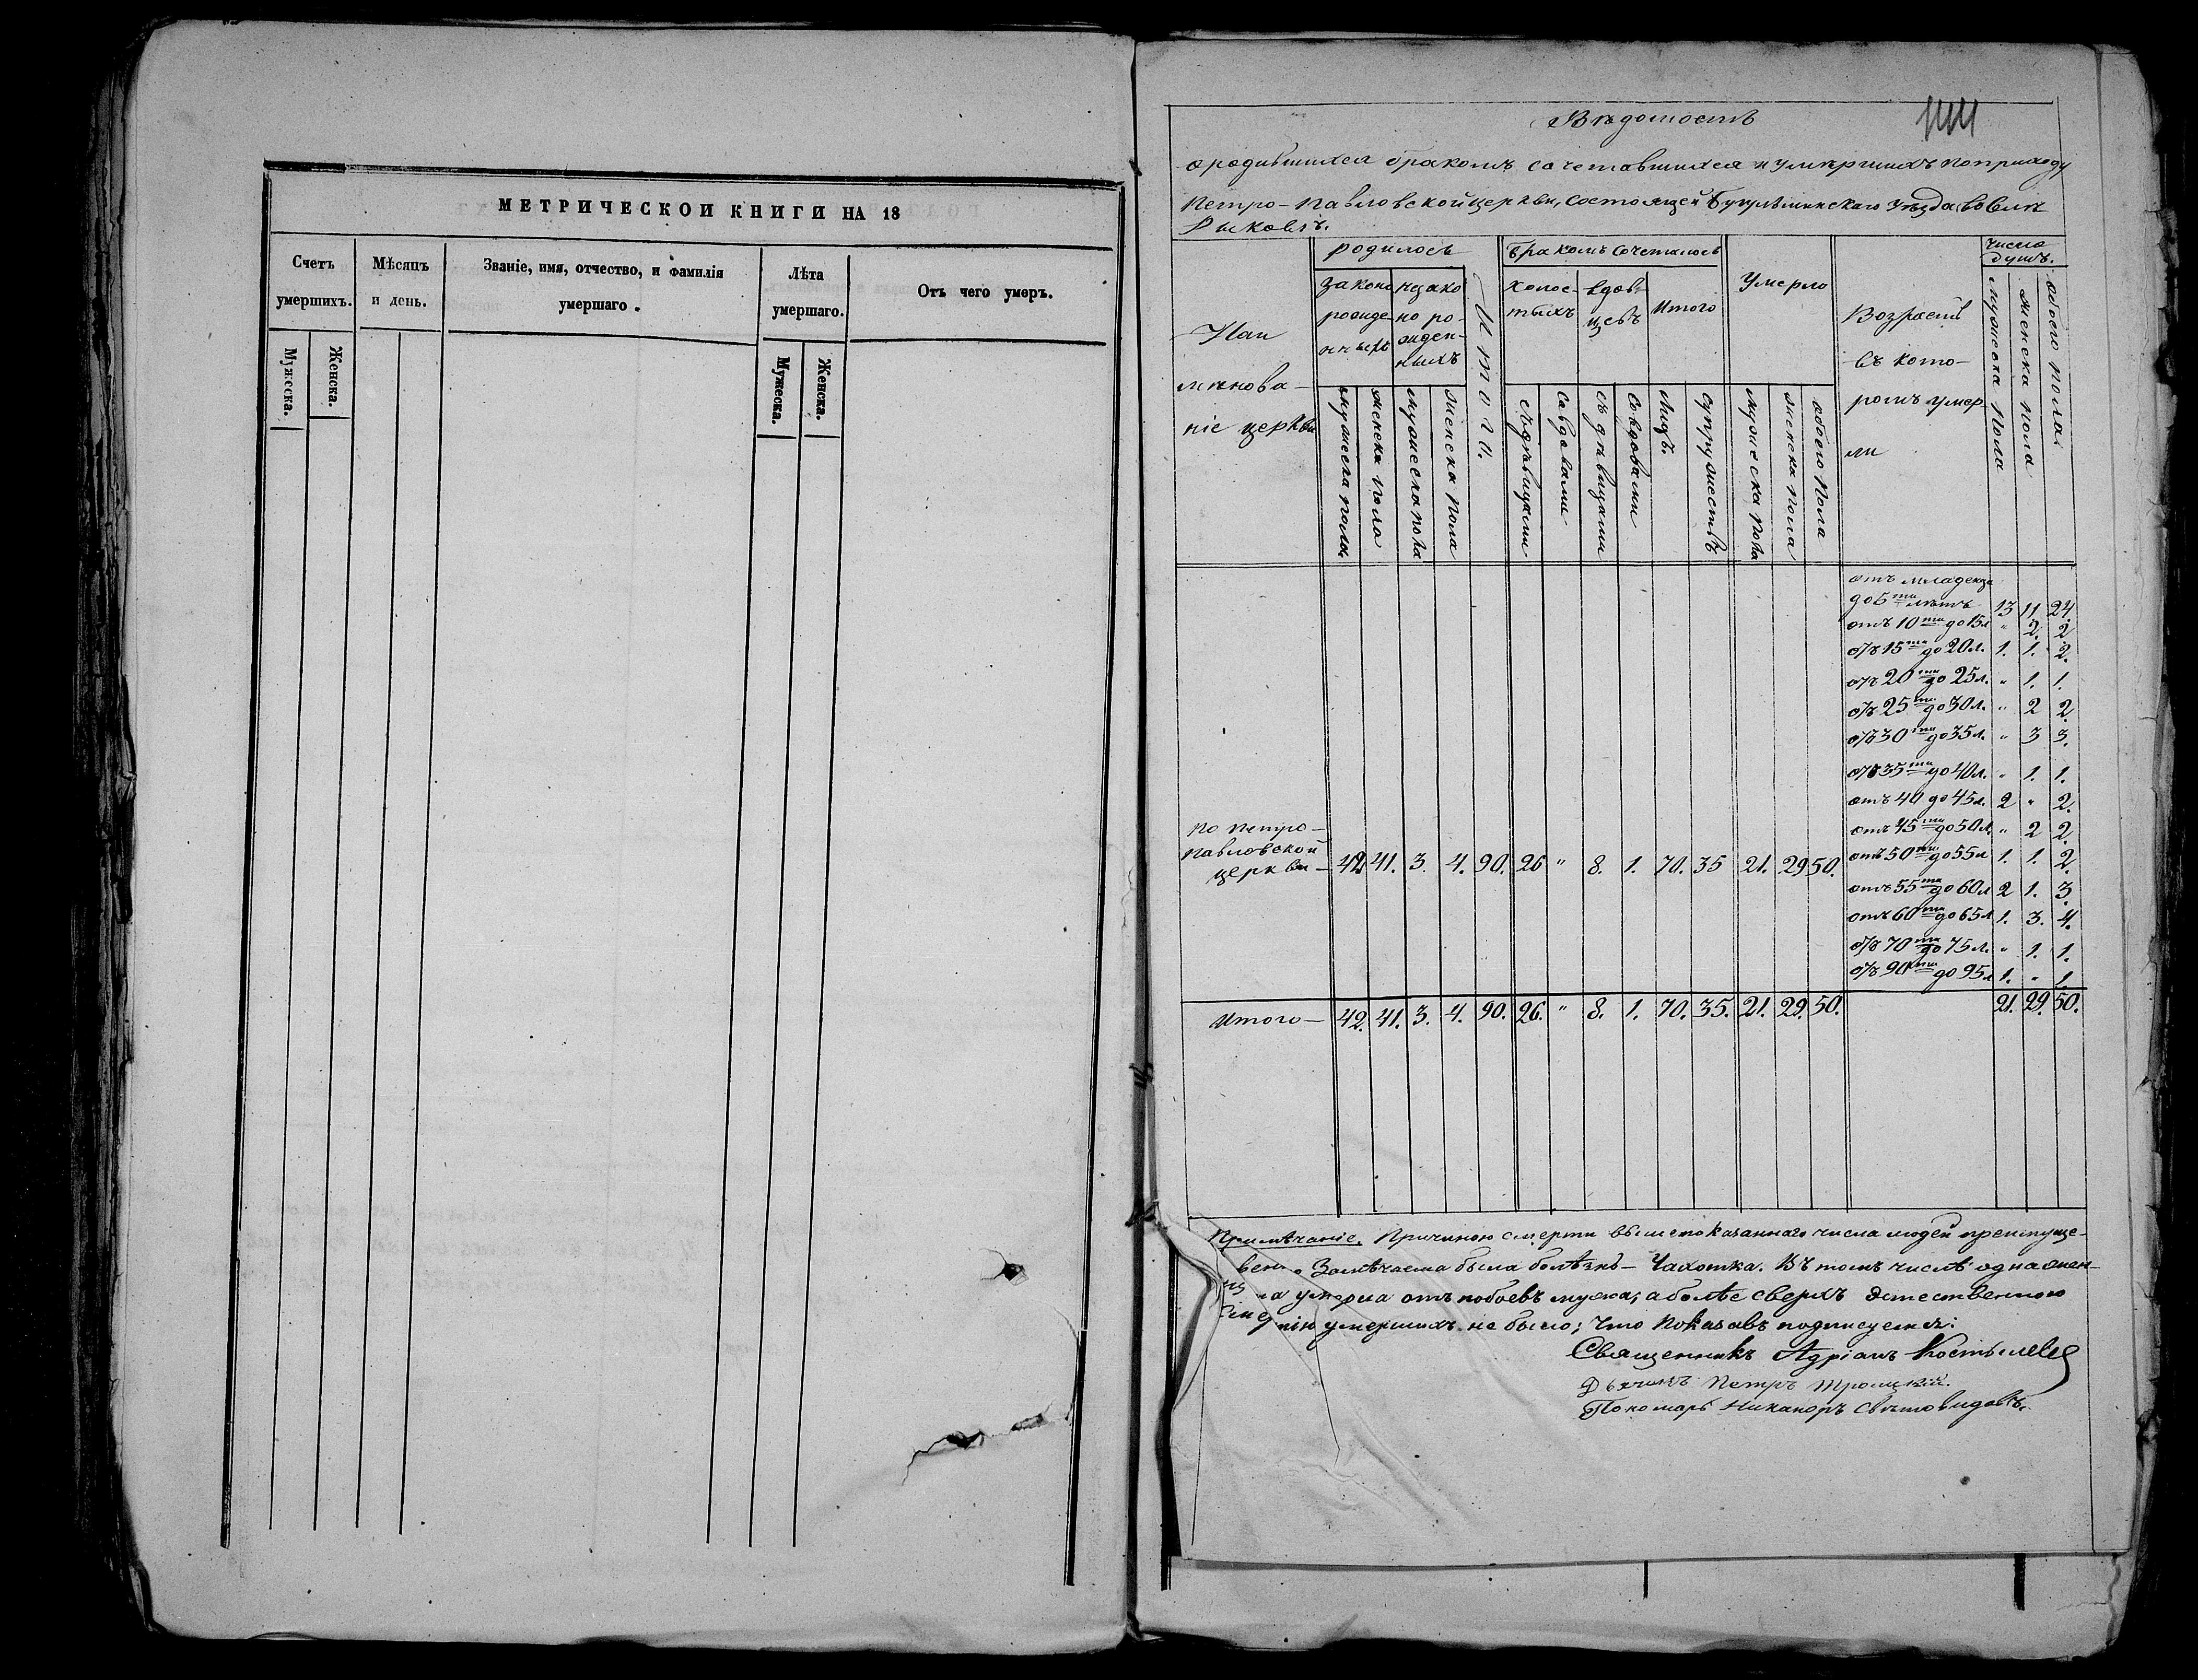 МЕТРИЧЕСКОЙ КНИГИ НА 18
Счетъ умершихъ.
Мужеска.
Женска.
Мѣсяцъ и день.
Званіе, имя, отчество, и фамилія умершаго.
Лѣта умершаго.
Мужеска.
Женска.
Отъ чего умеръ.
Вѣдомость
о родившихся бракомъ сочетавшихся и умершихъ по приходу
Петро-Павловской церкви, состоящей Бугульминскаго уѣзда въ селѣ
Рыковѣ.
Наименованіе церкви
родилось
законорожденныхъ
незаконорожденныхъ
мужеска пола
женска пола
мужеска пола
женска пола
Итого.
бракомъ сочеталось
холостыхъ
вдовцевъ
Итого
Съ дѣвицами
Съ вдовами
Съ дѣвицами
Съ вдовами
Лицъ.
Супружествъ
Умерло
мужеска пола
женска пола
обоего пола
Возрастъ въ которомъ умерли
число душъ.
Мужеска пола
Женска пола
Обоего пола.
отъ младенца
до 5ти лѣтъ 13 11 24.
отъ 10ти до 15 л " 2. 2
отъ 15ти до 20 л. 1. 1. 2.
отъ 20ти до 25 л. " 1. 1.
отъ 25ти до 30 л. " 2 2
отъ 30ти до 35 л. " 3 3.
отъ 35ти до 40 л. " 1. 1.
отъ 40 до 45 л. 2 " 2.
отъ 45ти до 50 л. " 2 2.
отъ 50ти до 55 л 1. 1. 2.
отъ 55ти до 60 л 2 1. 3.
отъ 60ти до 65 л 1. 3. 4.
отъ 70ти до 75 л. " 1. 1.
отъ 90ти до 95 л 1. " 1.
По Петро-
Павловской
церкви – 42 41. 3. 4. 90. 26 " 8. 1. 70. 35 21. 29 50.
Итого – 42. 41. 3. 4. 90. 26. " 8. 1. 70. 35. 21. 29. 50. 21. 29. 50.
Примѣчаніе. Причиною смерти вышепоказаннаго числа людей преимуще-
вен о Замѣчаема была болѣзнь – Чахотка. Въ томъ числѣ одна жен-
на умерла отъ побоевъ мужа; а болѣе сверхъ естественною
умершихъ не было; Что показавъ подписуемся:
Священникъ Адріанъ Костылевъ
Дьячекъ Петръ Троицкій.
Пономарь Никаноръ Свѣтовидовъ.